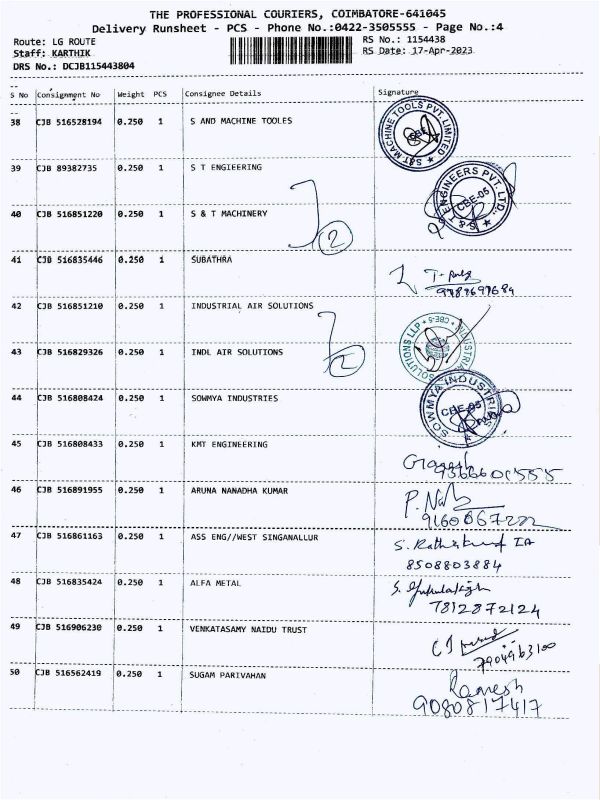 THE PROFESSIONAL COURIERS, COIMBATORE-641045
Delivery Runsheet - PCS - Phone No.:0422-3505555 - Page No.:4
Route: LG ROUTE RS No.: 1154438
Staff: KARTHIK RS Date: 17-Apr-2023
DRS No.: DCJB115443804
S No Consignment No Weight PCS Consignee Details Signature
38 CJB 516528194 0.250 1 S AND MACHINE TOOLES
S&T MACHINE TOOLS PVT. LIMITED
39 CJB 89382735 0.250 1 S T ENGIEERING
S & T ENGINEERS PVT. LTD. CBE-05
40 CJB 516851220 0.250 1 S & T MACHINERY
2
41 CJB 516835446 0.250 1 SUBATHRA
42 CJB 516851210 0.250 1 INDUSTRIAL AIR SOLUTIONS
43 CJB 516829326 0.250 1 INDL AIR SOLUTIONS
2
INDUSTRIAL SOLUTIONS LLP CBE-5
44 CJB 516808424 0.250 1 SOWMYA INDUSTRIES
SOWMYA INDUSTRIES CBE-05
45 CJB 516808433 0.250 1 KMT ENGINEERING
46 CJB 516891955 0.250 1 ARUNA NANADHA KUMAR
47 CJB 516861163 0.250 1 ASS ENG//WEST SINGANALLUR
8508803884
48 CJB 516835424 0.250 1 ALFA METAL
7812872124
49 CJB 516906230 0.250 1 VENKATASAMY NAIDU TRUST
50 CJB 516562419 0.250 1 SUGAM PARIVAHAN
Ramesh
9080817417